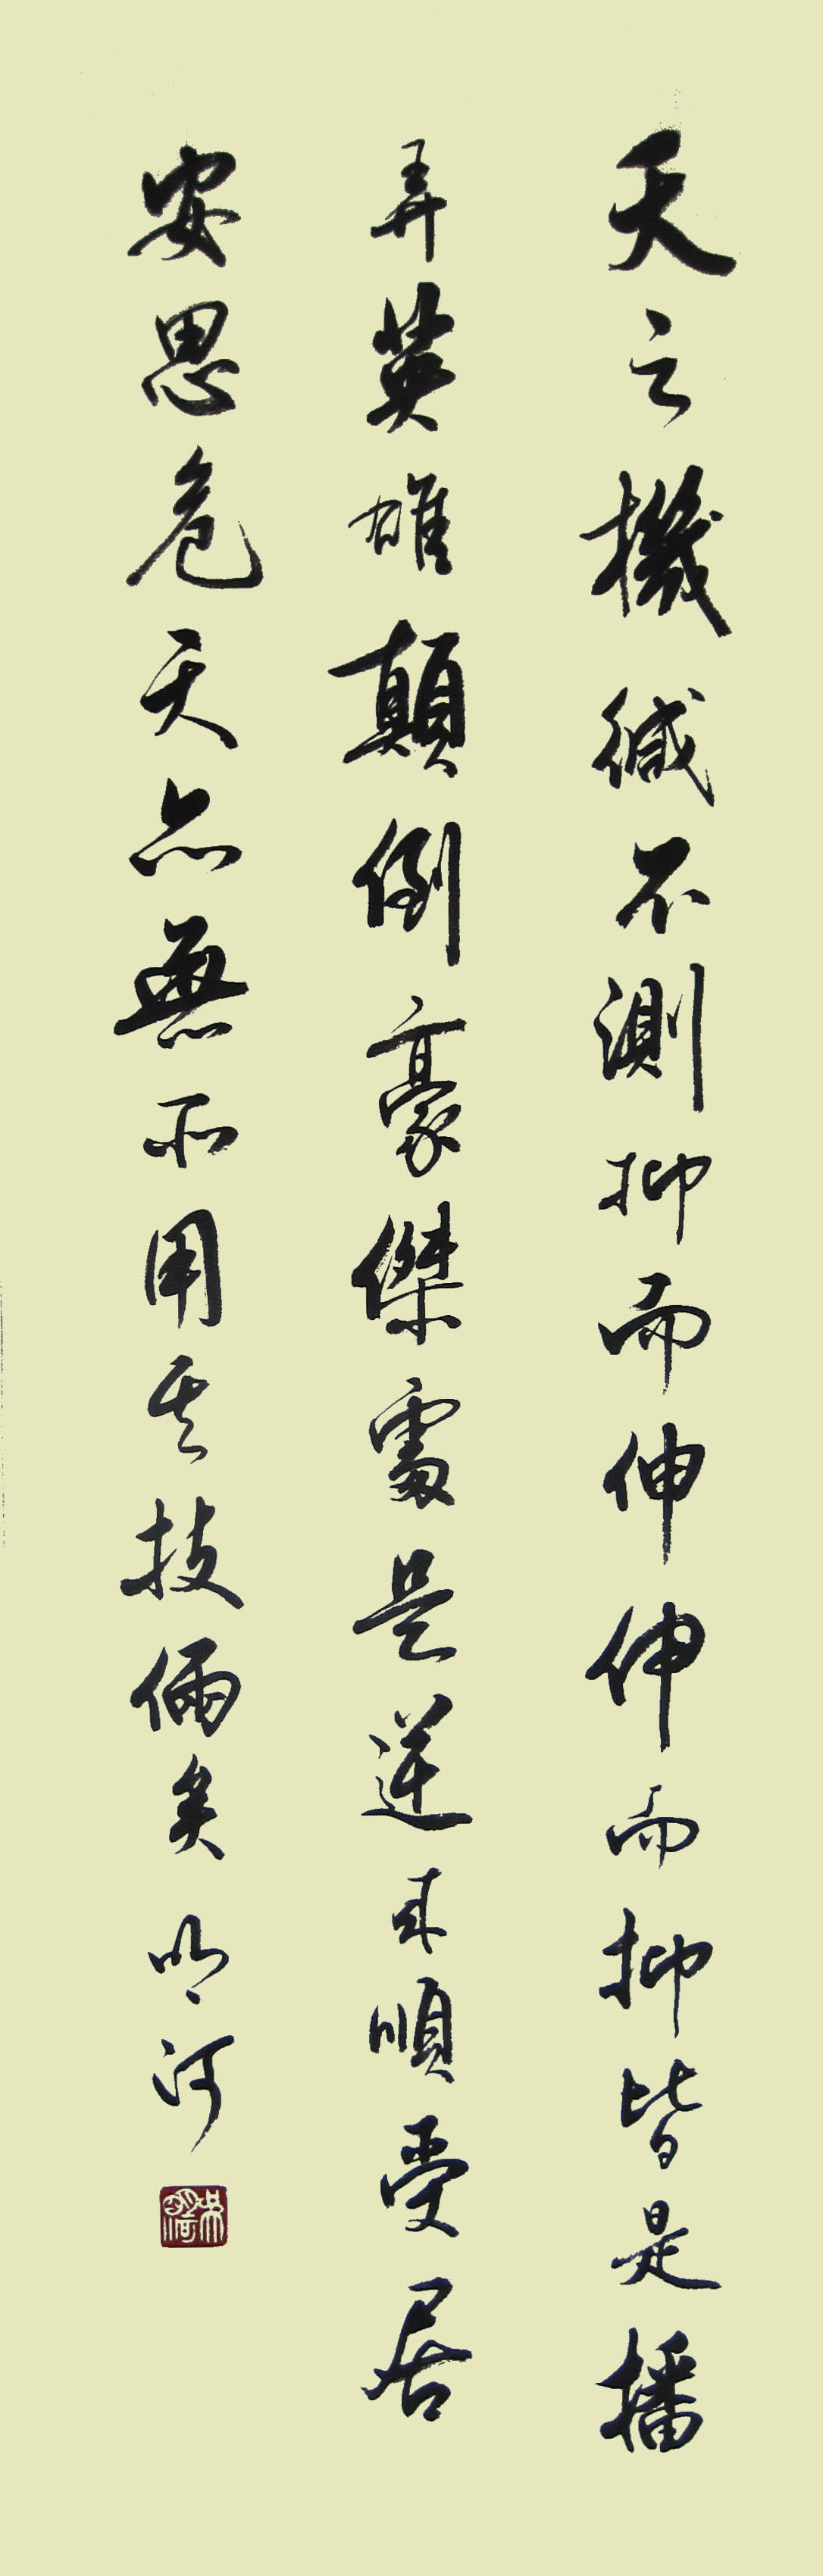 天之機緘不測抑而伸伸而抑皆是播
弄英雄顛倒豪傑處是逆來順受居
安思危天亦無所用其技倆矣 明河